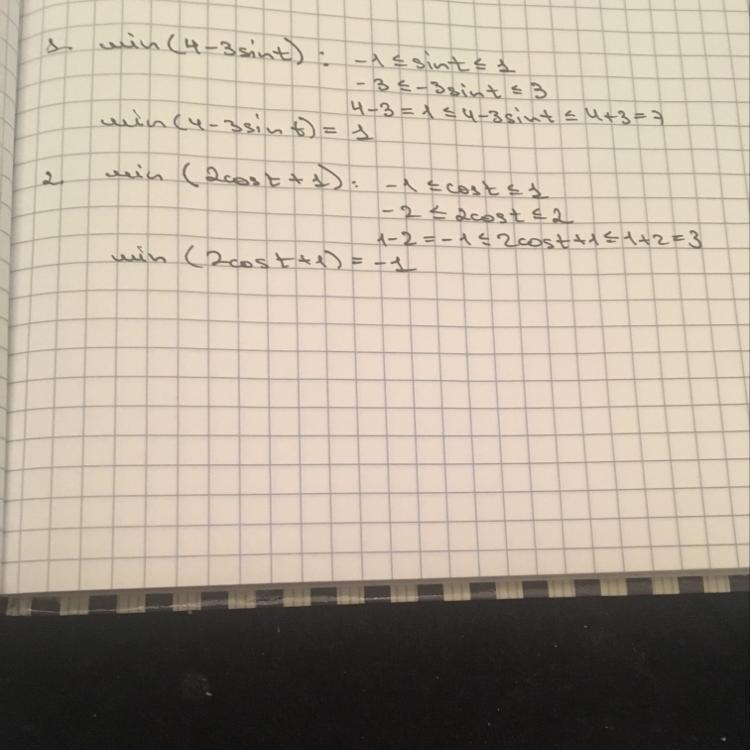 1. min(4-3sint): -1 ≤ sint ≤ 1
-3 ≤ -3sint ≤ 3
4-3=1 ≤ 4-3sint ≤ 4+3=7
min(4-3sint)= 1
2. min (2cost+1): -1 ≤ cost ≤ 1
-2 ≤ 2cost ≤ 2
1-2=-1 ≤ 2cost+1 ≤ 1+2=3
min (2cost+1)= -1